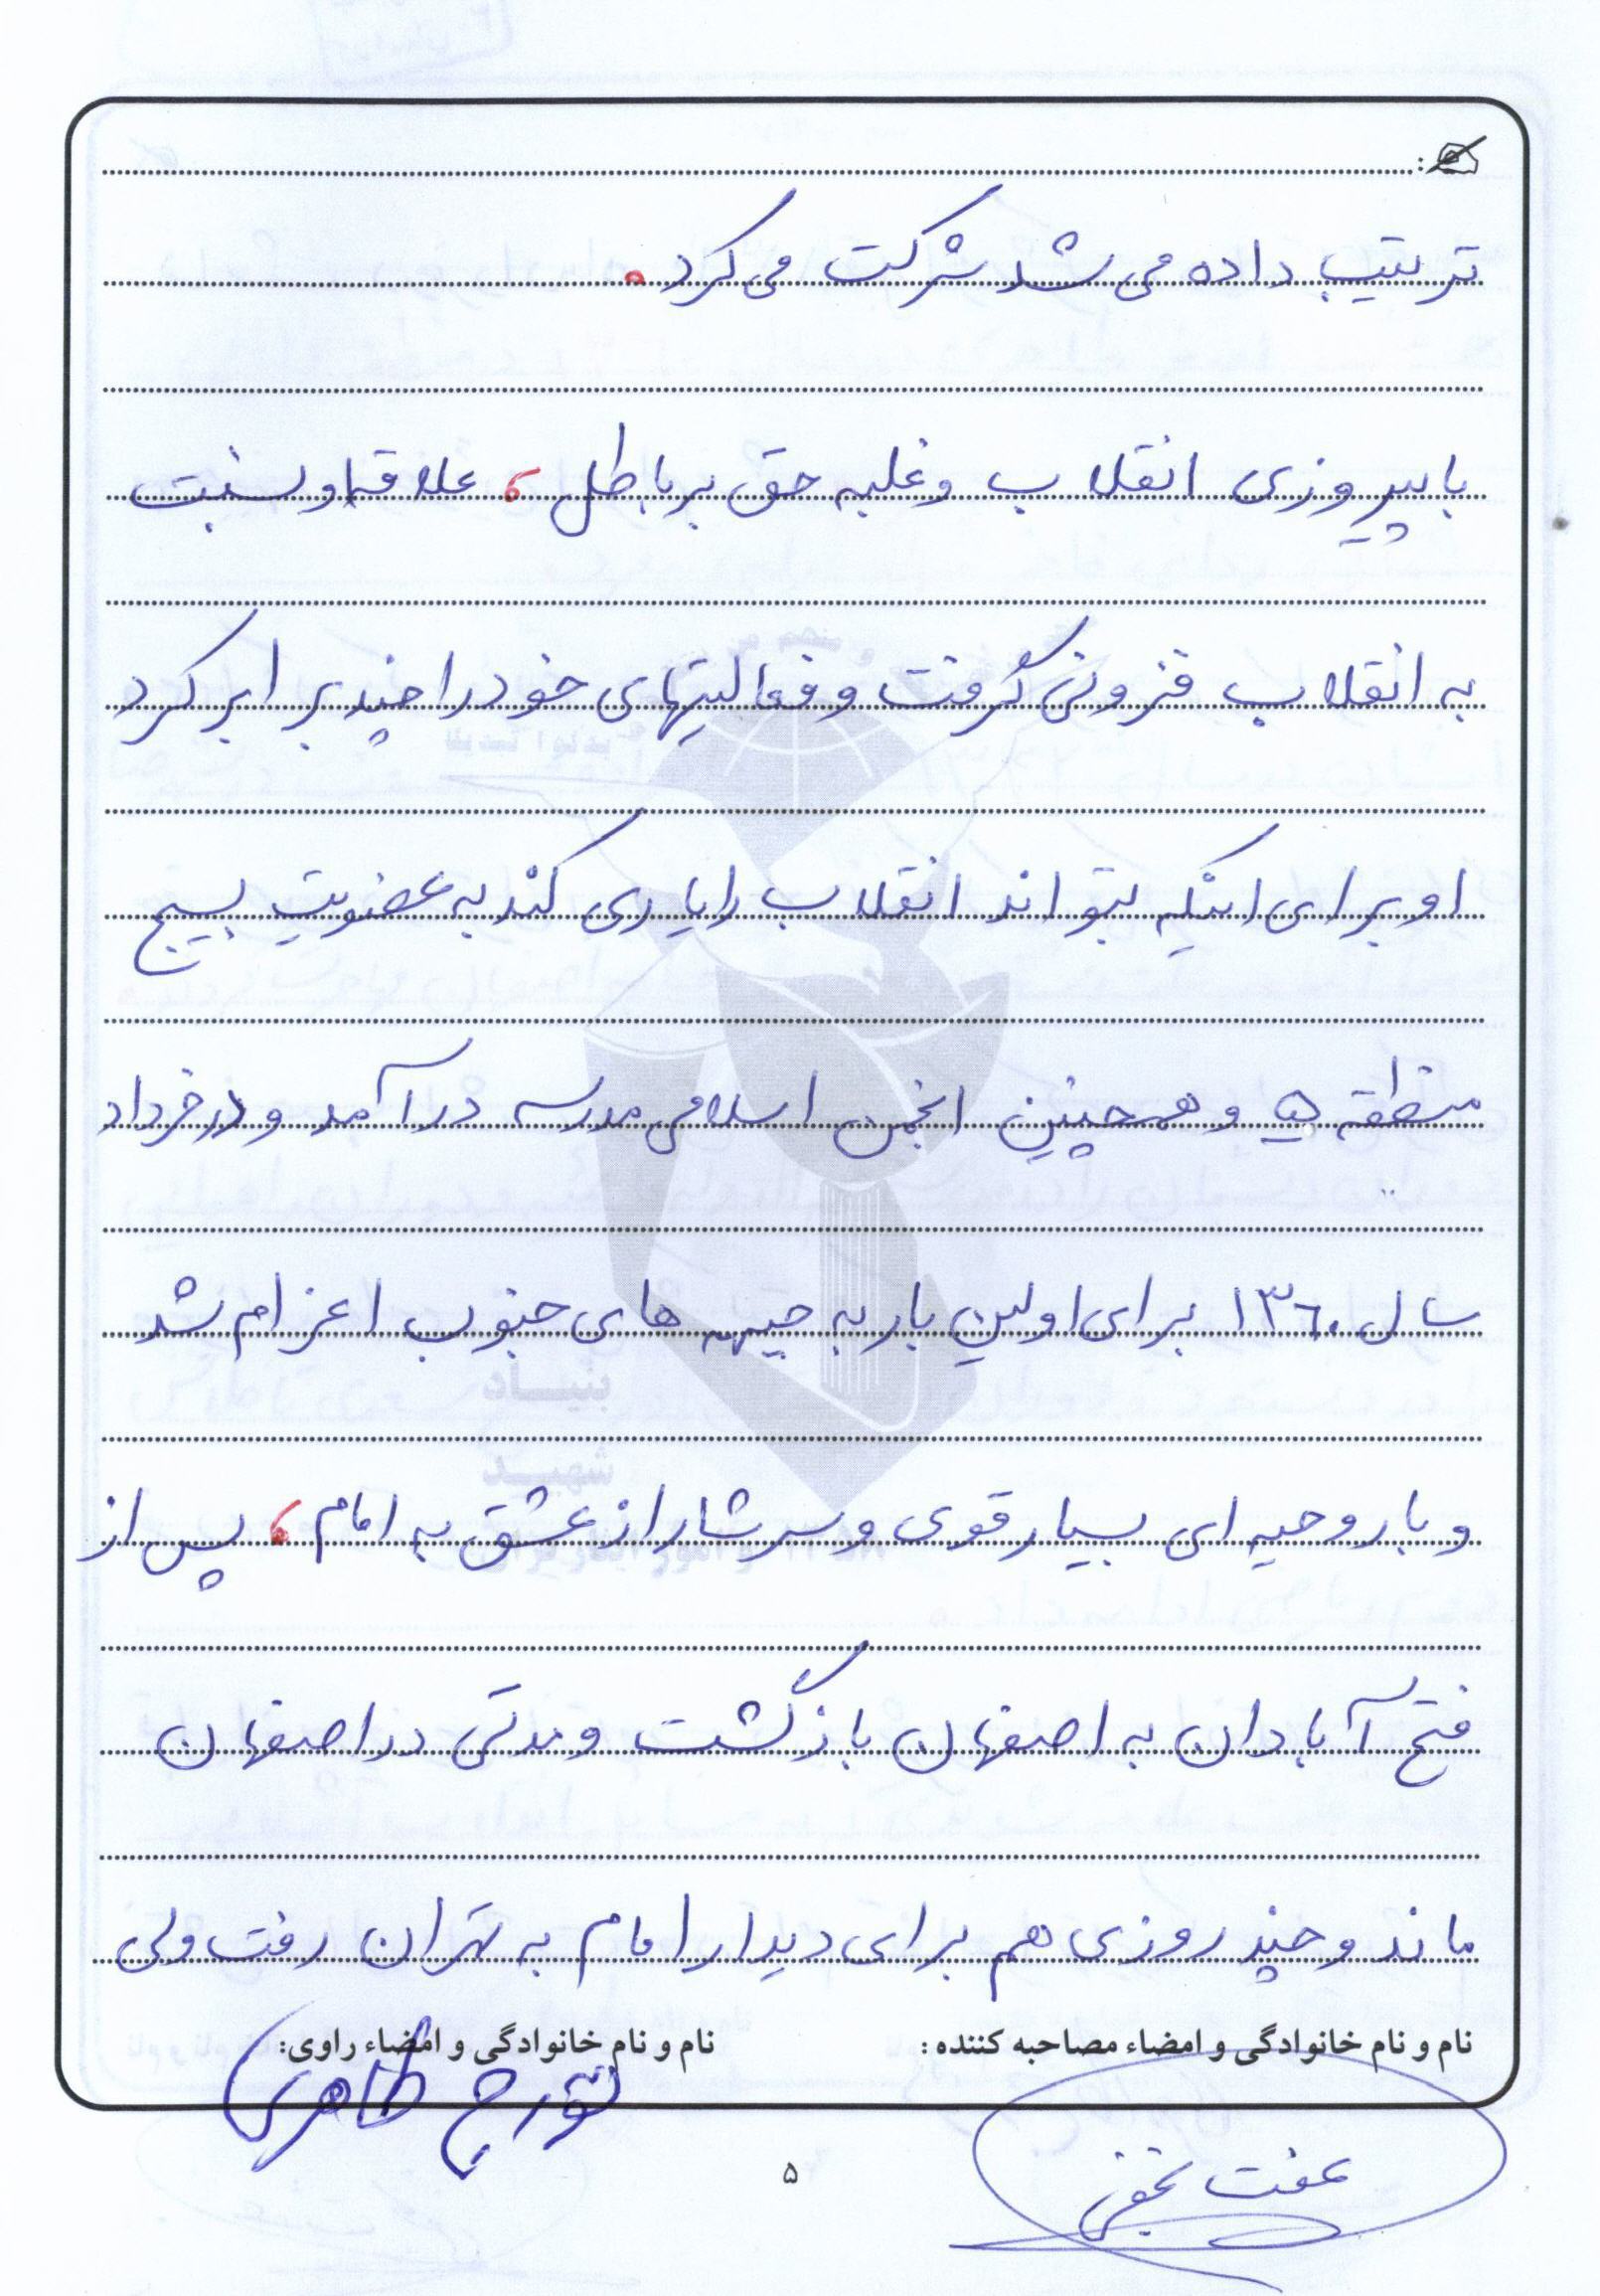 ترتیب داده می شد شرکت می کرد.
با پیروزی انقلاب و غلبه حق بر باطل، علاقه او نسبت
به انقلاب فزونی گرفت و فعالیتهای خود را چند برابر کرد
او برای اینکه بتواند انقلاب را یاری کند به عضویت بسیج
منطقه ۵ و همچنین انجمن اسلامی مدرسه در آمد و در خرداد
سال ۱۳۶۰ برای اولین بار به جبهه های جنوب اعزام شد
و با روحیه ای بسیار قوی و سرشار از عشق به امام، پس از
فتح آبادان به اصفهان بازگشت و مدتی در اصفهان
ماند و چند روزی هم برای دیدار امام به تهران رفت ولی
نام و نام خانوادگی و امضاء مصاحبه کننده: نام و نام خانوادگی و امضاء راوی:
عفت نجفی تورج طاهری
۵
بنیاد
شهید